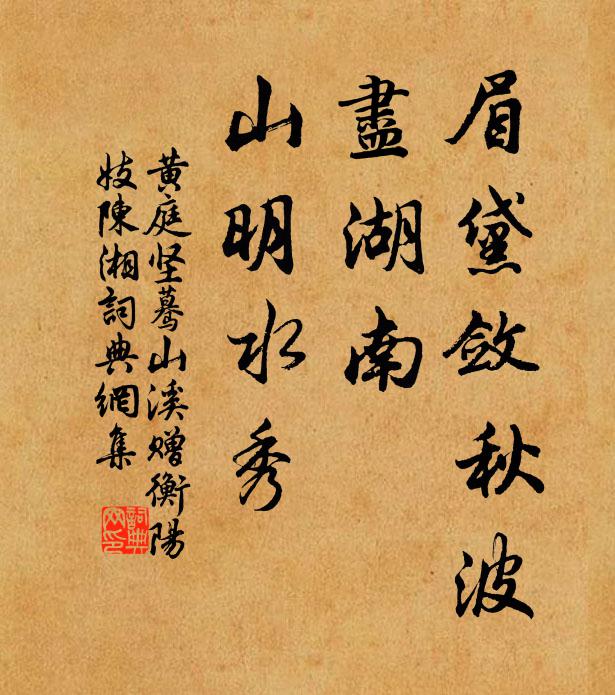 眉黛斂秋波
盡湖南
山明水秀
黄庭坚驀山溪贈衡陽
妓陳湘詞典網集
詞典
网印